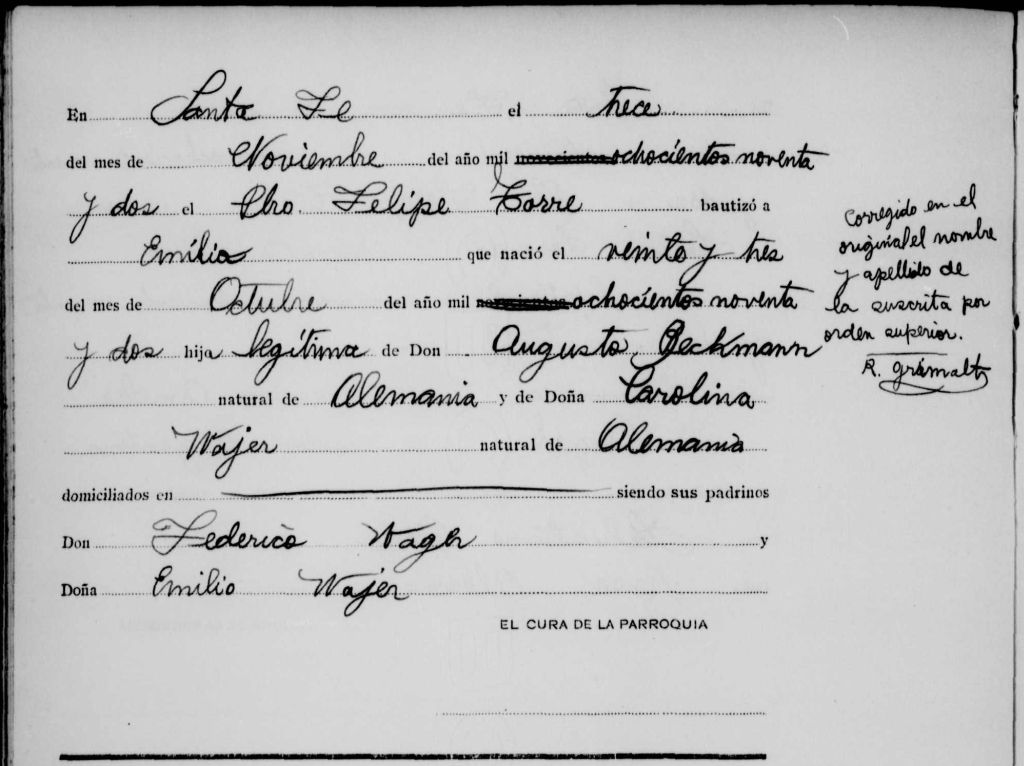 En Santa Fe el trece
del mes de Noviembre del año mil novecientos ochocientos noventa
y dos el Pbro. Felipe Torre bautizó a
Emília que nació el veinte y tres
del mes de Octubre del año mil novecientos ochocientos noventa
y dos hija legítima de Don Augusto Beckmann
natural de Alemania y de Doña Carolina
Wajer natural de Alemania
domiciliados en siendo sus padrinos
Don Federico Wager y
Doña Emilio Wajer
EL CURA DE LA PARROQUIA
Corregido en el
original el nombre
y apellido de
la suscrita por
orden superior.
R. Grimalt